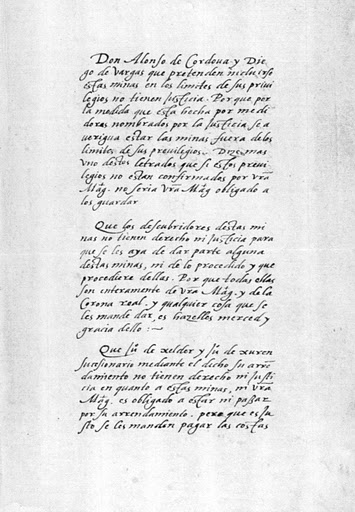 Don Alonso de Cordova y Die
go de Vargas que pretenden incluirse
estas minas en los limites de sus privi
legios no tienen justicia. Por que por
la medida que esta hecha por medi
dores nombrados por la justicia se a
verigua estar las minas fuera delos
limites de sus previlegios. Dize mas
uno destos letrados que si estos previ
legios no estan confirmados por vrã
Mag. no seria vrã Mag obligado a
los guardar
Que los descubridores destas mi
nas no tienen derecho ni justicia para
que se les aya de dar parte alguna
destas minas, ni de lo procedido y que
procediere dellas. Por que todas ellas
son enteramente de vrã Mag. y de la
Corona real. y qualquier cosa que se
les mande dar, es hazelles merced y
gracia dello:~
Que Jũ de xelder y Jũ de xuren
sucessionario mediante el decho su arrẽ
damiento no tienen derecho ni justi
cia en quanto a estas minas, ni vrã
Mag. es obligado a estar ni passar
por su arrendamiento. pero que es ju
sto se les manden pagar las costas